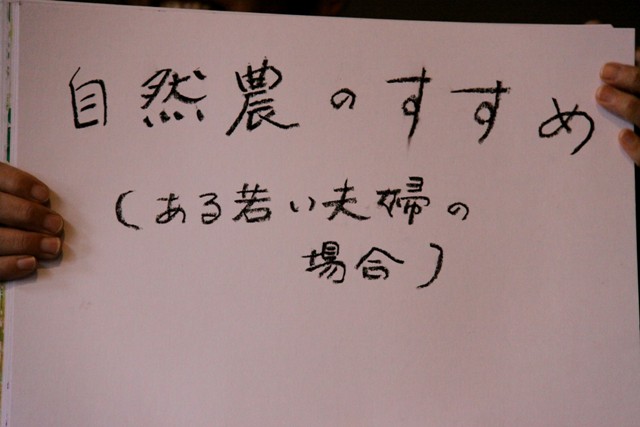 自然農のすすめ
(ある若い夫婦の
場合)